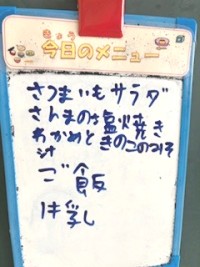 きょう
今日のメニュー
さつまいもサラダ
さんまの塩火焼き
わかめときのこのみそ
汁
ご飯
牛乳